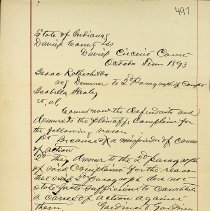 497
State of Indiana
Daviess County SS
Daviess Circuit Court
October Term 1893
Isaac Rothschilds
Demurrer to 2d Paragraph of Compt
Isabella
et al
Comes now the defendants and
demurs to the plaintiffs Complaint for
the following reason
1st Because of a misjoinder of causes
of action
2d They demur to the 2d Paragraph
of said Complaint for the reason
the said 2d Paragraph does not
state facts sufficient to constitute
a cause of action against
them